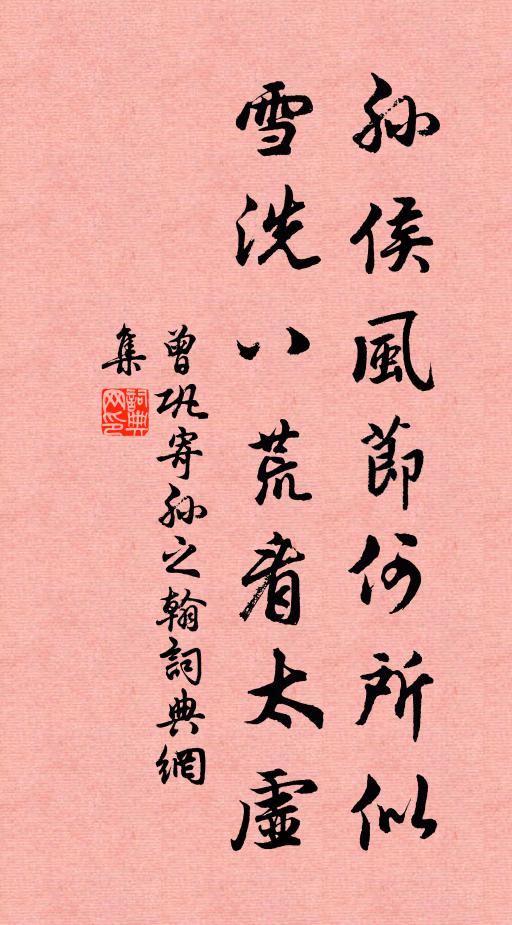 孫侯風節何所似
雪洗八荒看太虛
曾巩寄孫之翰詞典網
集
詞典
网印